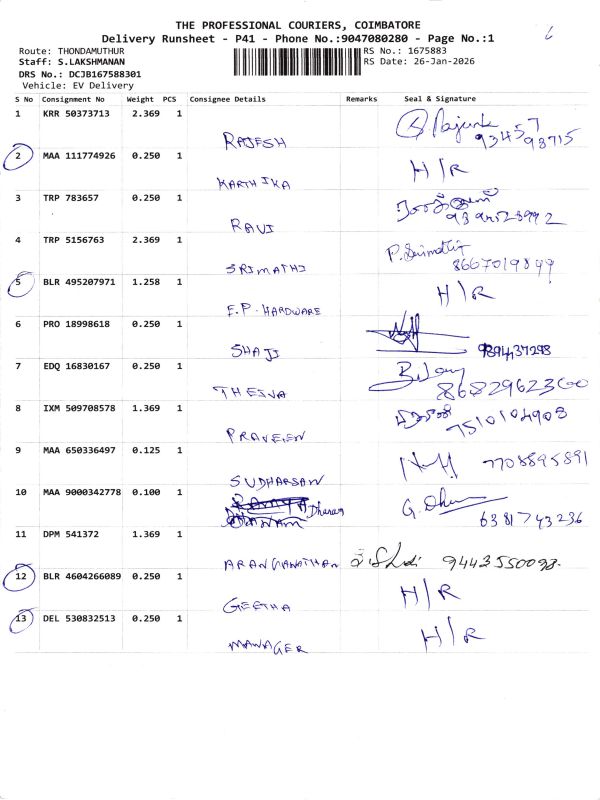 THE PROFESSIONAL COURIERS, COIMBATORE
Delivery Runsheet - P41 - Phone No.:9047080280 - Page No.:1
6
Route: THONDAMUTHUR
RS No.: 1675883
Staff: S.LAKSHMANAN
RS Date: 26-Jan-2026
DRS No.: DCJB167588301
Vehicle: EV Delivery
S No Consignment No Weight PCS Consignee Details Remarks Seal & Signature
1 KRR 50373713 2.369 1 RAJESH 93457 98715
2 MAA 111774926 0.250 1 KARTHIKA H/R
3 TRP 783657 0.250 1 RAVI
4 TRP 5156763 2.369 1 SRIMATHI P. Srimathi 8667019899
5 BLR 495207971 1.258 1 E.P. HARDWARE H/R
6 PRO 18998618 0.250 1 SHAJI 9894437298
7 EDQ 16830167 0.250 1 THEJVA 8682962300
8 IXM 509708578 1.369 1 PRAVEEN 7510104908
9 MAA 650336497 0.125 1 SUDHARSAN 7708895891
10 MAA 9000342778 0.100 1 Dharan 6381743236
11 DPM 541372 1.369 1 ARANGANATHAN 9443550093.
12 BLR 4604266089 0.250 1 GEETHA H/R
13 DEL 530832513 0.250 1 MANAGER H/R